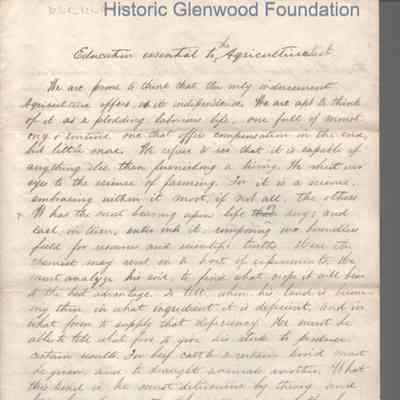 Historic Glenwood Foundation
Education essential to the Agriculturalist
We are prone to think that the only inducement
Agriculture offers, is its independence. We are apt to think
of it as a plodding laborious life, one full of monot
ony & one that offers compensation in the end,
but little more. We refuse to see that it is capable of
anything else, than furnishing a living. We shut our
eyes to the science of farming. For it is a science,
embracing within it most, if not all, the others
It has the most bearing upon life than any; and
each, in turn, enter into it, composing a boundless
field for research and scientific truths. Here the
chemist may revel in a host of experiments. He
must analyze his soil, to find what crops it will bear
to the best advantage. To tell, when his land is becom
ing thin in what ingredient it is deficient, and in
what form to supply that deficiency. He must be
able to tell what food to give his stock to produce
certain results. For beef cattle a certain kind must
be given, and to draught animals another. What
this kind is he must determine by trying and